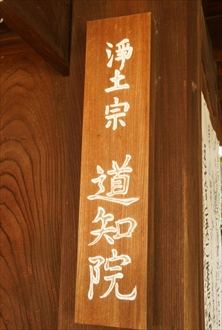 浄土宗 道知院